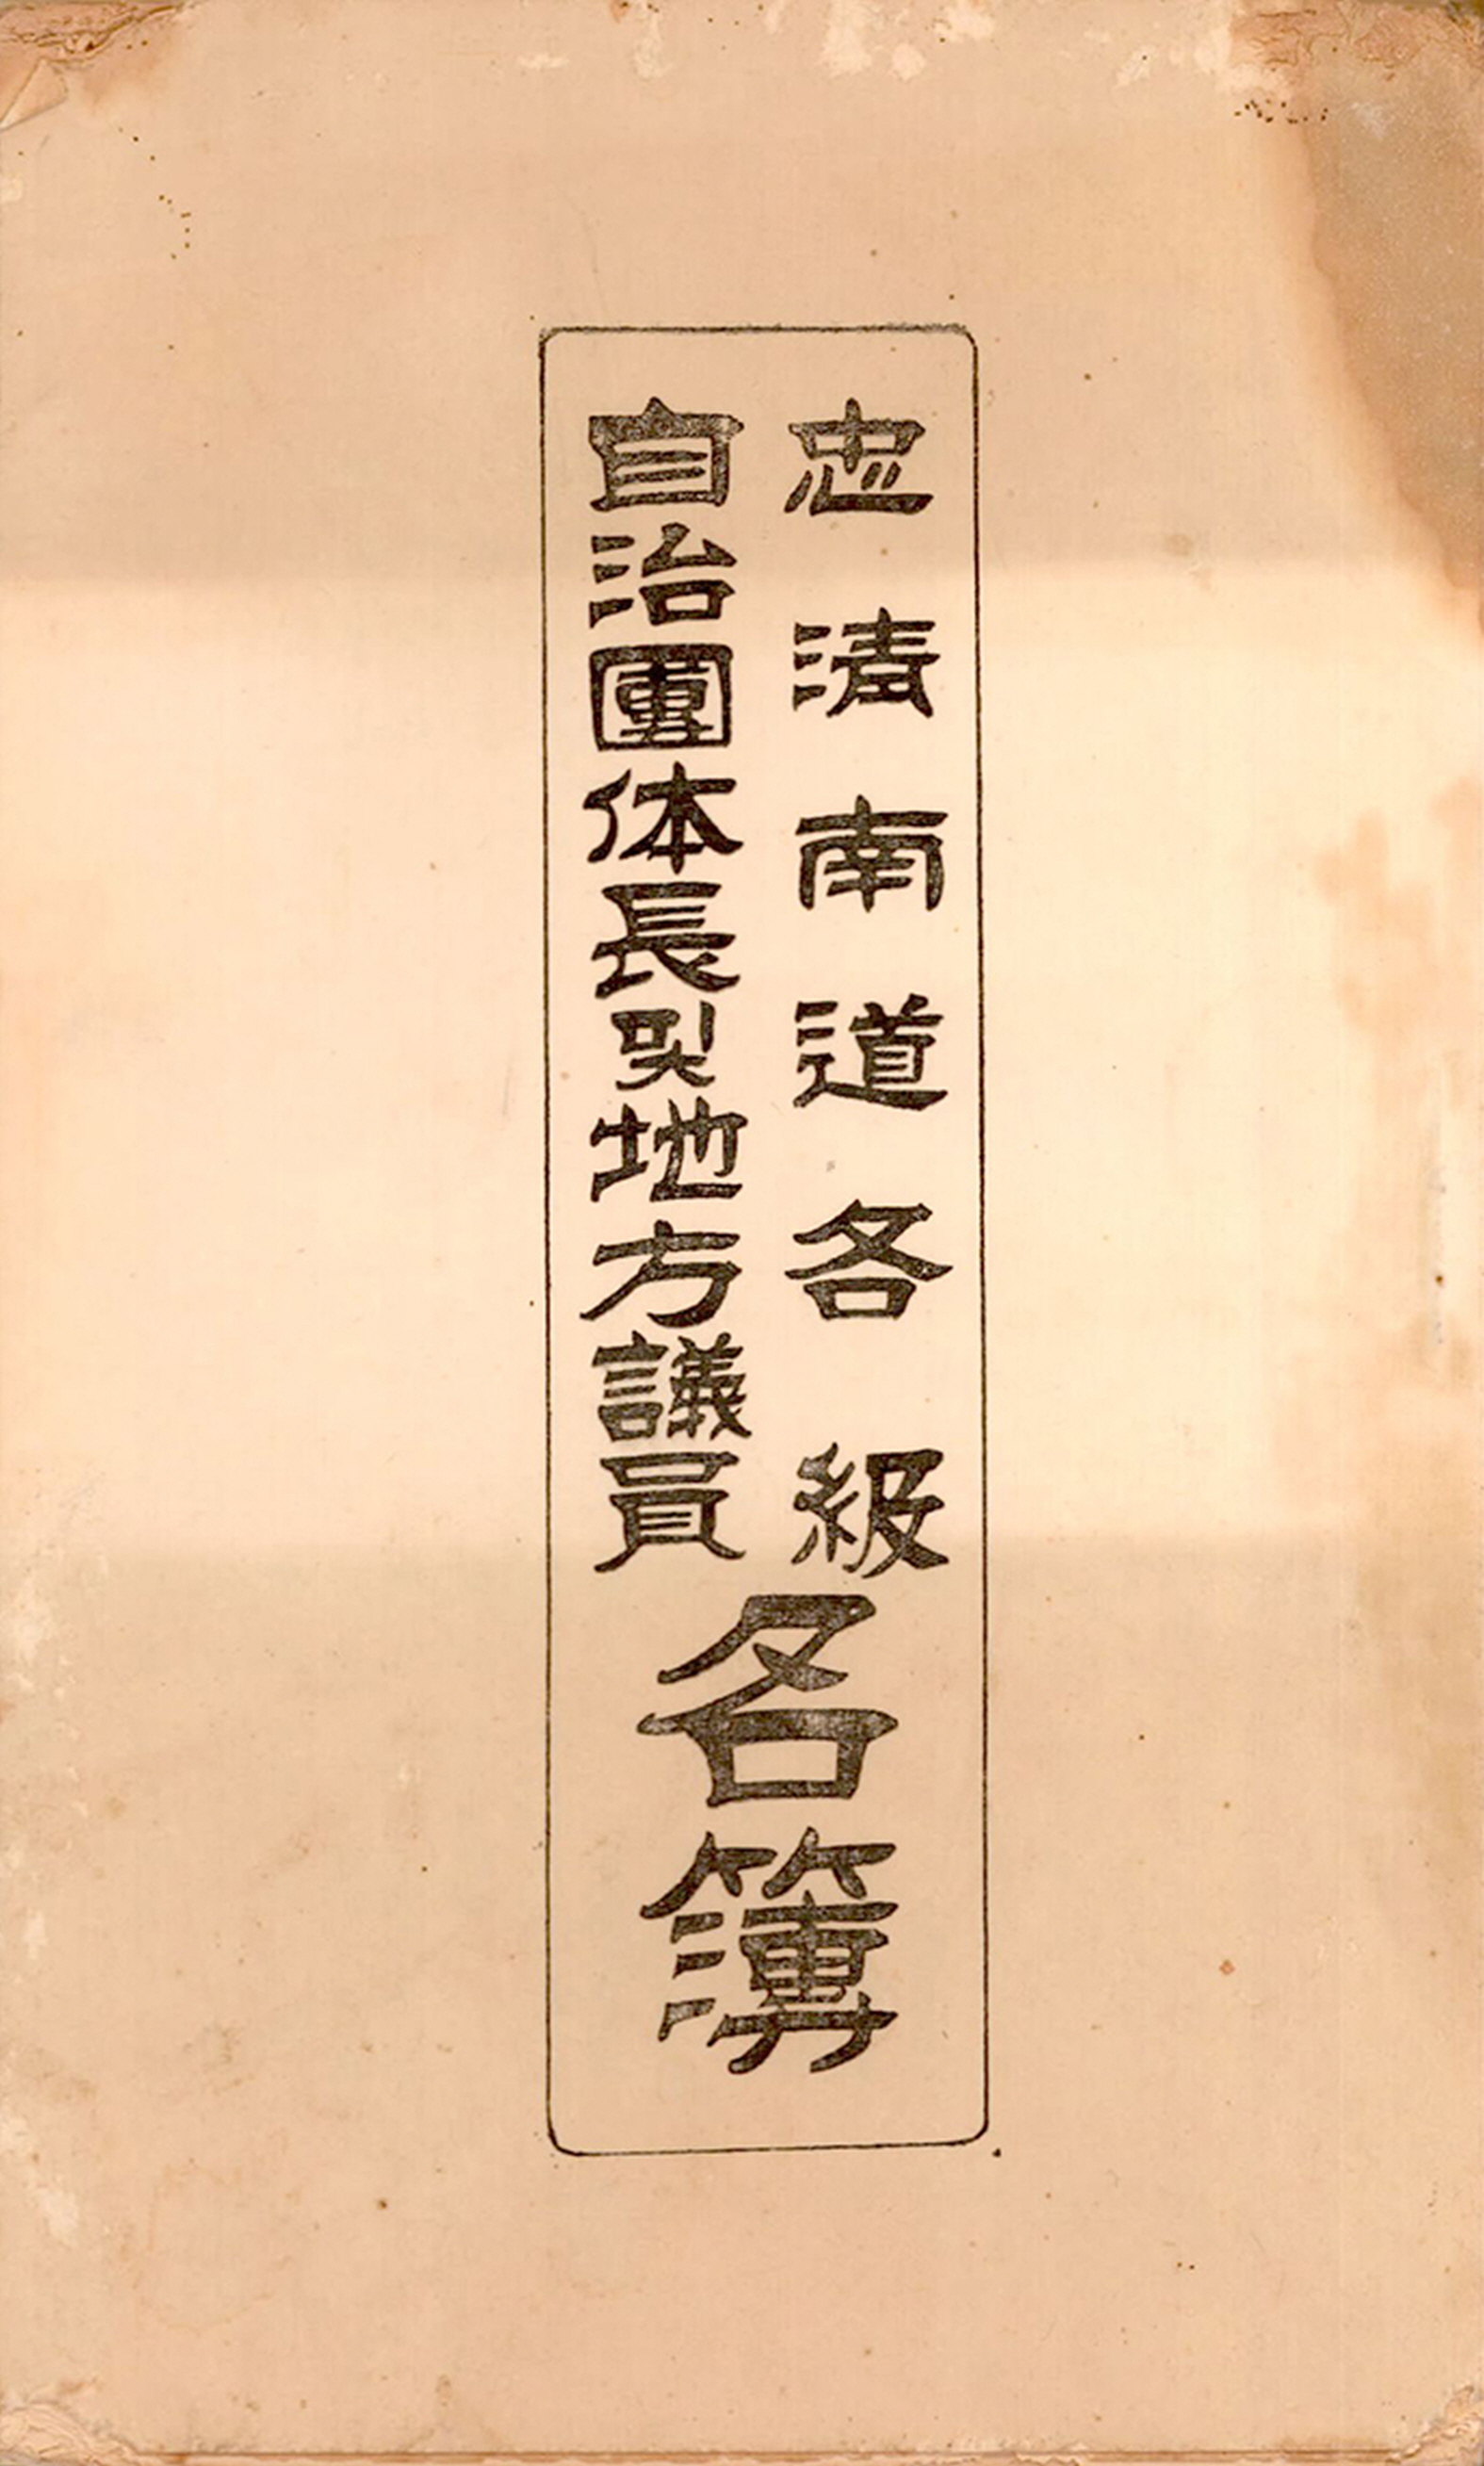 忠清南道各級
自治團体長및地方議員
名簿